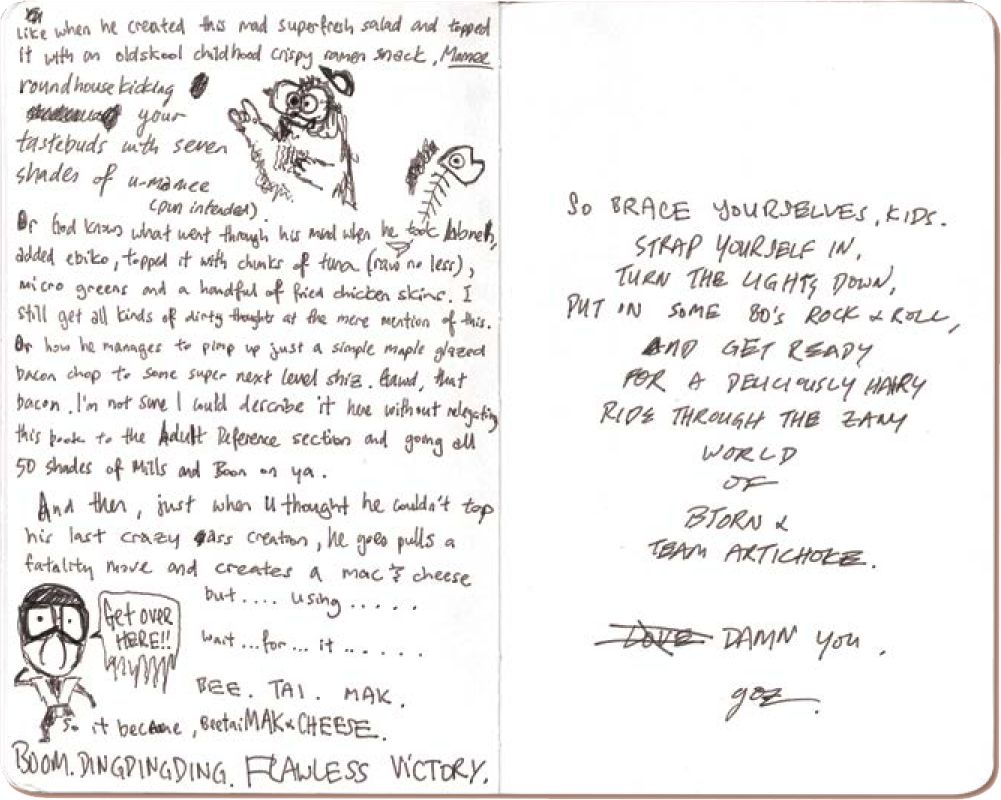 Like when he created this mad superfresh salad and topped
it with an oldskool childhood crispy ramen snack, Mamee
roundhouse kicking
your
tastebuds with seven
shades of u-mamee
(pun intended).
Or God knows what went through his mind when he took labneh,
added ebiko, topped it with chunks of tuna (raw no less),
micro greens and a handful of fried chicken skins. I
still get all kinds of dirty thoughts at the mere mention of this.
Or how he manages to pimp up just a simple maple glazed
bacon chop to some super next level shiz. Gawd, that
bacon. I'm not sure I could describe it here without relegating
this book to the Adult Reference section and going all
50 shades of Mills and Boon on ya.
And then, just when u thought he couldn't top
his last crazy ass creation, he goes pulls a
fatality move and creates a mac & cheese
but.... using.....
Get over
HERE!!
wait...for... it.......
BEE. TAI. MAK.
So it became, BeetaiMAK & CHEESE.
BOOM. DINGDINGDING. FLAWLESS VICTORY.
SO BRACE YOURSELVES, KIDS.
STRAP YOURSELF IN,
TURN THE LIGHTS DOWN,
PUT ON SOME 80'S ROCK & ROLL,
AND GET READY
FOR A DELICIOUSLY HAIRY
RIDE THROUGH THE ZANY
WORLD
OF
BJORN &
TEAM ARTICHOKE.
LOVE DAMN YOU.
goz.